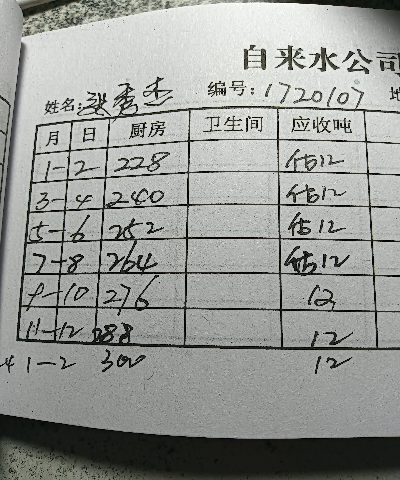 自来水公司
姓名:张秀杰 编号:1720107
月 日 厨房 卫生间 应收吨
1-2 228 估12
3-4 240 估12
5-6 252 估12
7-8 264 估12
9-10 276 12
11-12 288 12
1-2 300 12